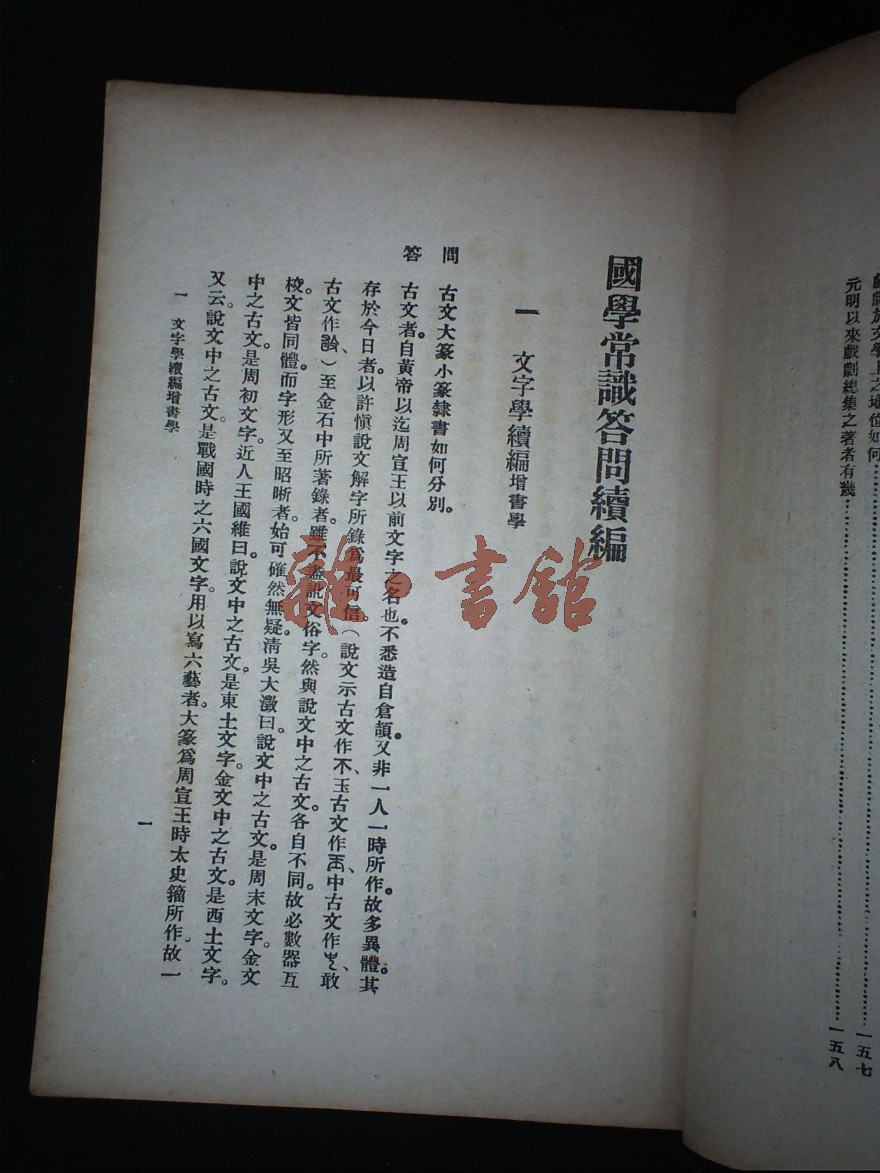 元明以來戲劇總集之著者有幾……一五八
於文學上之地位如何……一五七
國學常識答問續編
一 文字學續編增書學
問 古文大篆小篆隸書如何分別。
答 古文者。自黃帝以迄周宣王以前文字之名也。不悉造自倉頡。又非一人一時所作。故多異體。其
存於今日者。以許愼說文解字所錄爲最可信。（說文示古文作、玉古文作、中古文作、敢
古文作、）至金石中所著錄者。雖不盡訛文俗字。然與說文中之古文。各自不同。故必數器互
校。文皆同體。而字形又至昭晰者。始可確然無疑。清吳大澂曰。說文中之古文。是周末文字。金文
中之古文。是周初文字。近人王國維曰。說文中之古文。是東土文字。金文中之古文。是西土文字。
又云。說文中之古文。是戰國時之六國文字。用以寫六藝者。大篆爲周宣王時太史籀所作。故一
一 文字學續編增書學
一
雜·書館